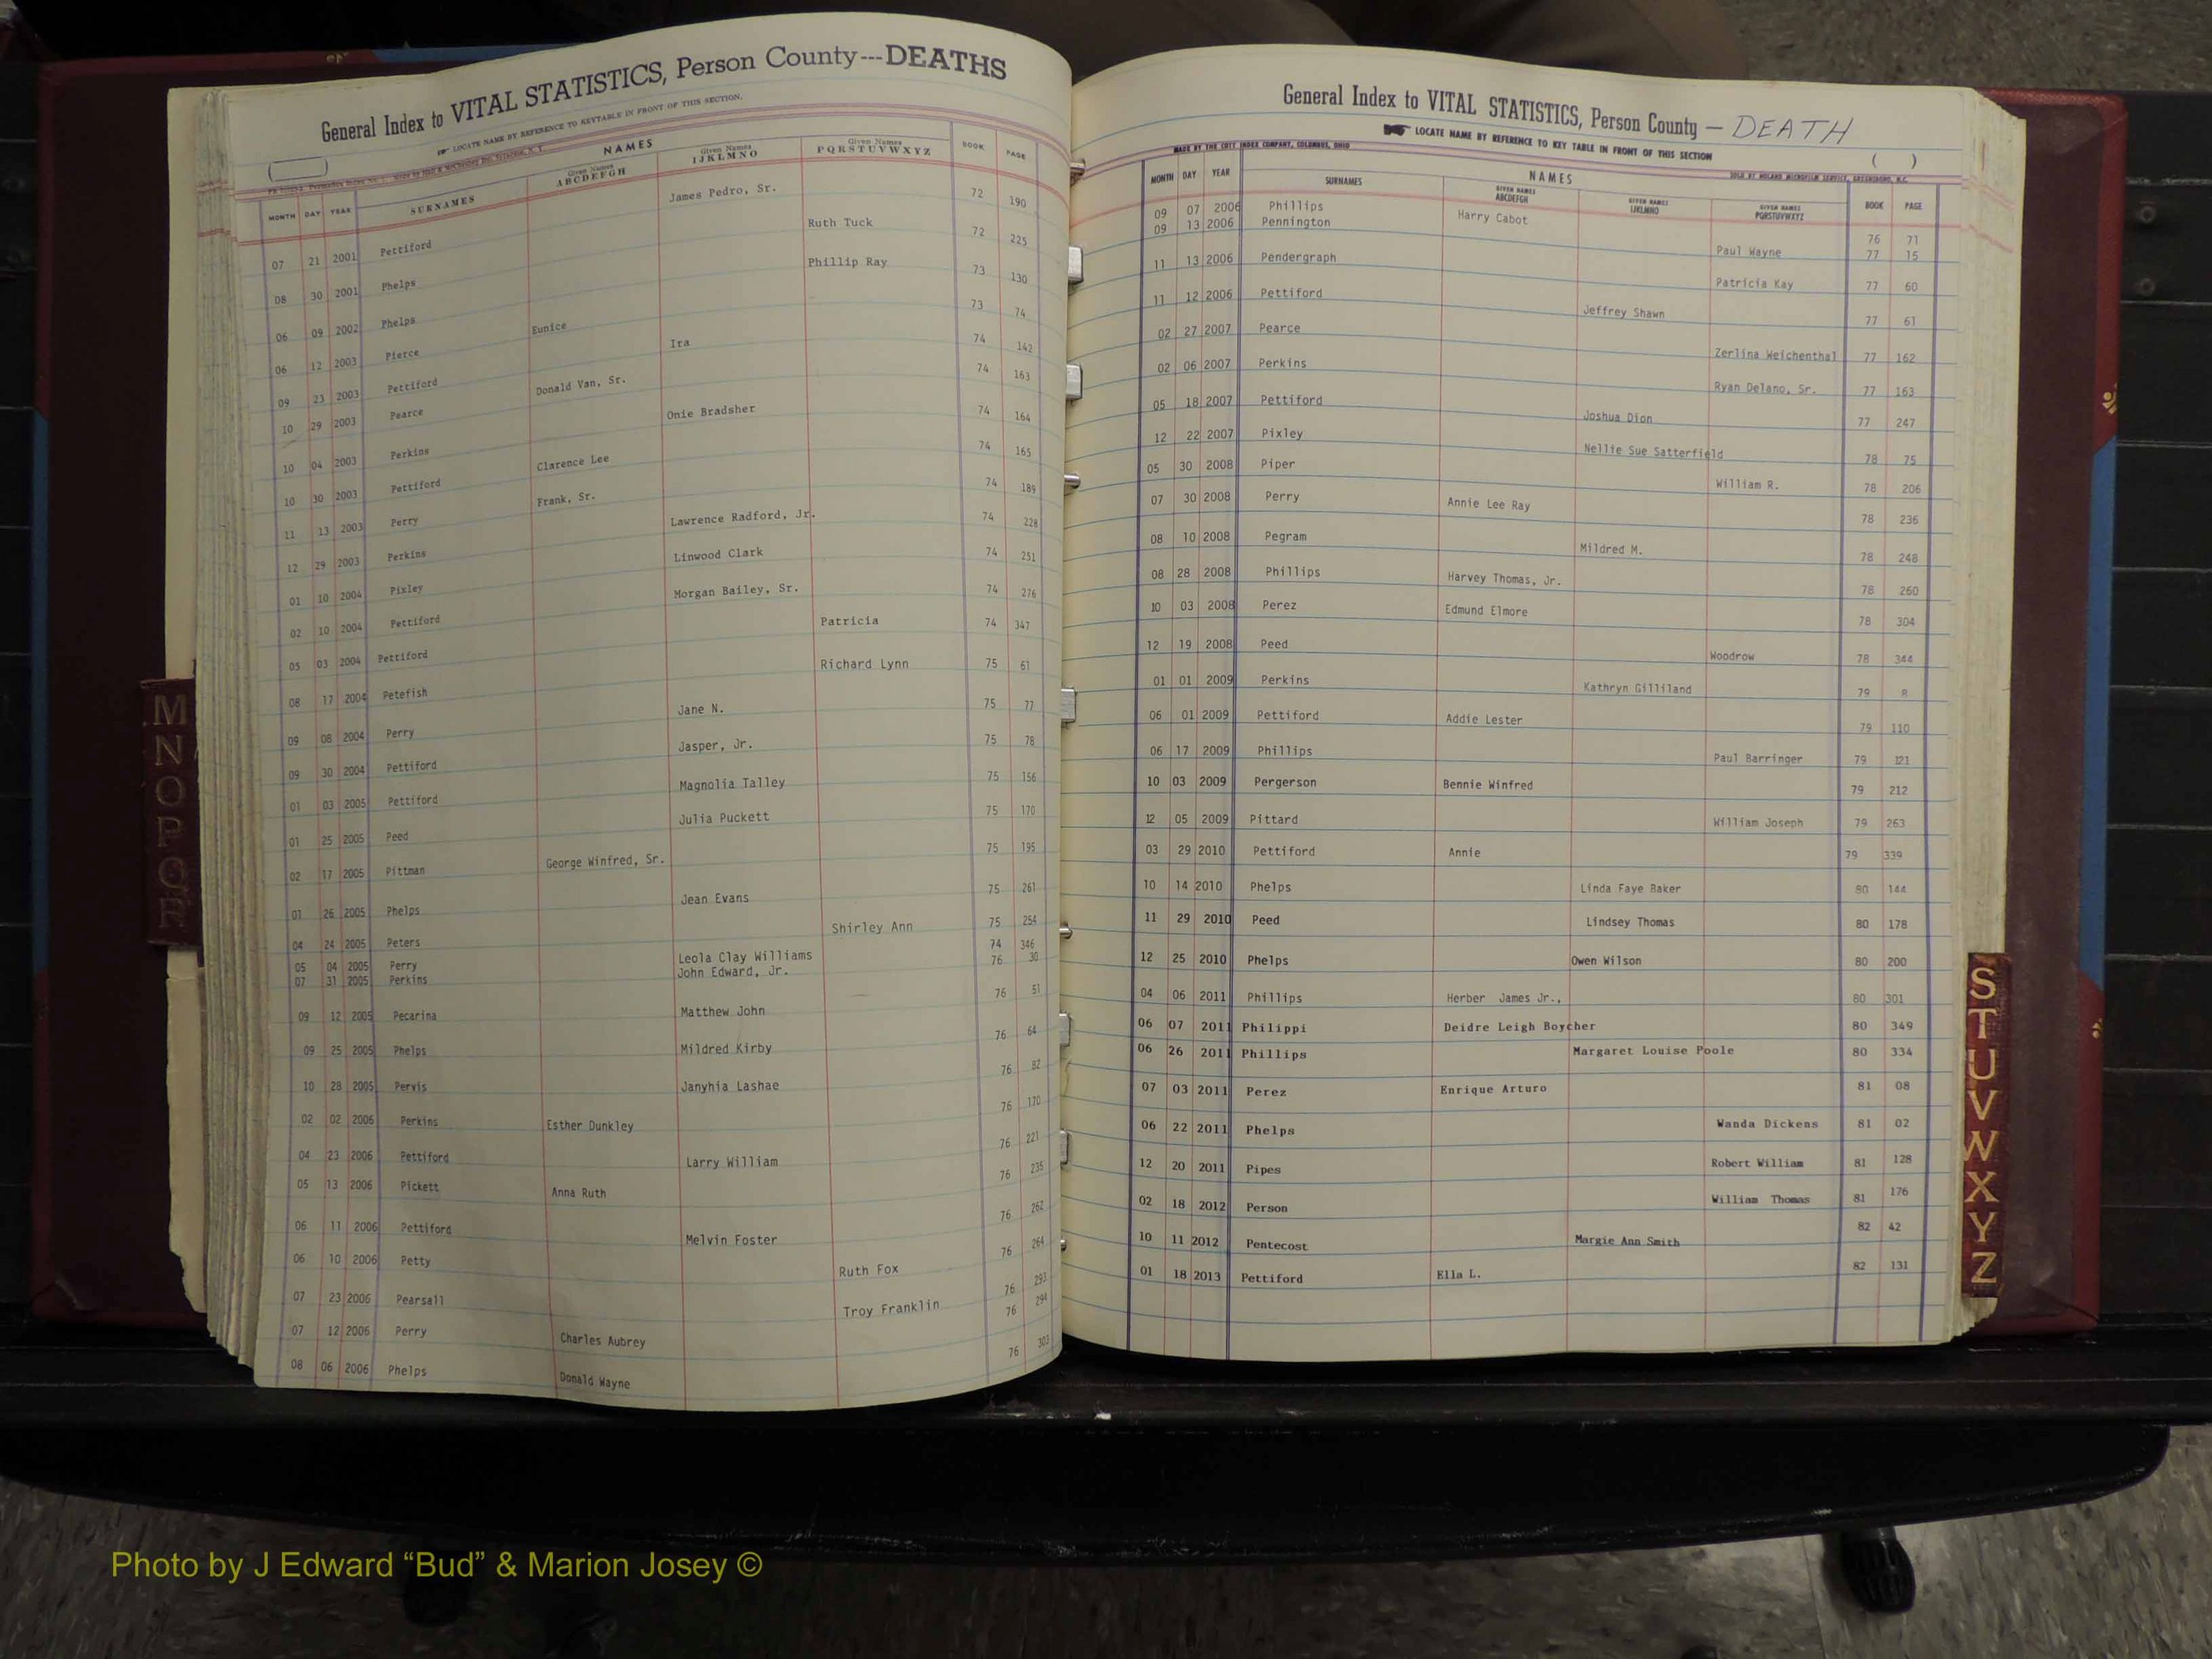 General Index to VITAL STATISTICS, Person County---DEATHS
LOCATE NAME BY REFERENCE TO KEYTABLE IN FRONT OF THIS SECTION.
NAMES
MONTH DAY YEAR SURNAMES Given Names ABCDEFGH Given Names IJKLMNO Given Names PQRSTUVWXYZ BOOK PAGE
07 21 2001 Pettiford James Pedro, Sr. 72 190
08 30 2001 Phelps Ruth Tuck 72 225
06 09 2002 Phelps Phillip Ray 73 130
06 12 2003 Pierce Eunice 73 74
09 23 2003 Pettiford Ira 74 142
10 29 2003 Pearce Donald Van, Sr. 74 163
10 04 2003 Perkins Onie Bradsher 74 164
10 30 2003 Pettiford Clarence Lee 74 165
11 13 2003 Perry Frank, Sr. 74 189
12 29 2003 Perkins Lawrence Radford, Jr. 74 228
01 10 2004 Pixley Linwood Clark 74 251
02 10 2004 Pettiford Morgan Bailey, Sr. 74 276
05 03 2004 Pettiford Patricia 74 347
08 17 2004 Petefish Richard Lynn 75 61
09 08 2004 Perry Jane N. 75 77
09 30 2004 Pettiford Jasper, Jr. 75 78
01 03 2005 Pettiford Magnolia Talley 75 156
01 25 2005 Peed Julia Puckett 75 170
02 17 2005 Pittman George Winfred, Sr. 75 195
01 26 2005 Phelps Jean Evans 75 261
04 24 2005 Peters Shirley Ann 75 254
05 04 2005 Perry Leola Clay Williams 74 346
07 31 2005 Perkins John Edward, Jr. 76 30
09 12 2005 Pecarina Matthew John 76 51
09 25 2005 Phelps Mildred Kirby 76 64
10 28 2005 Pervis Janyhia Lashae 76 82
02 02 2006 Perkins Esther Dunkley 76 170
04 23 2006 Pettiford Larry William 76 221
05 13 2006 Pickett Anna Ruth 76 235
06 11 2006 Pettiford Melvin Foster 76 262
06 10 2006 Petty Ruth Fox 76 264
07 23 2006 Pearsall Troy Franklin 76 293
07 12 2006 Perry Charles Aubrey 76 294
08 06 2006 Phelps Donald Wayne 76 303
General Index to VITAL STATISTICS, Person County — DEATH
LOCATE NAME BY REFERENCE TO KEY TABLE IN FRONT OF THIS SECTION
( )
MADE BY THE COTT INDEX COMPANY, COLUMBUS, OHIO
SOLD BY NOLAND MICROFILM SERVICE, GREENSBORO, N.C.
NAMES
MONTH DAY YEAR SURNAMES GIVEN NAMES ABCDEFGH GIVEN NAMES IJKLMNO GIVEN NAMES PQRSTUVWXYZ BOOK PAGE
09 07 2006 Phillips Harry Cabot 76 71
09 13 2006 Pennington Paul Wayne 77 15
11 13 2006 Pendergraph Patricia Kay 77 60
11 12 2006 Pettiford Jeffrey Shawn 77 61
02 27 2007 Pearce Zerlina Weichenthal 77 162
02 06 2007 Perkins Ryan Delano, Sr. 77 163
05 18 2007 Pettiford Joshua Dion 77 247
12 22 2007 Pixley Nellie Sue Satterfield 78 75
05 30 2008 Piper William R. 78 206
07 30 2008 Perry Annie Lee Ray 78 236
08 10 2008 Pegram Mildred M. 78 248
08 28 2008 Phillips Harvey Thomas, Jr. 78 260
10 03 2008 Perez Edmund Elmore 78 304
12 19 2008 Peed Woodrow 78 344
01 01 2009 Perkins Kathryn Gilliland 79 8
06 01 2009 Pettiford Addie Lester 79 110
06 17 2009 Phillips Paul Barringer 79 121
10 03 2009 Pergerson Bennie Winfred 79 212
12 05 2009 Pittard William Joseph 79 263
03 29 2010 Pettiford Annie 79 339
10 14 2010 Phelps Linda Faye Baker 80 144
11 29 2010 Peed Lindsey Thomas 80 178
12 25 2010 Phelps Owen Wilson 80 200
04 06 2011 Phillips Herber James Jr., 80 301
06 07 2011 Philippi Deidre Leigh Boycher 80 349
06 26 2011 Phillips Margaret Louise Poole 80 334
07 03 2011 Perez Enrique Arturo 81 08
06 22 2011 Phelps Wanda Dickens 81 02
12 20 2011 Pipes Robert William 81 128
02 18 2012 Person William Thomas 81 176
10 11 2012 Pentecost Margie Ann Smith 82 42
01 18 2013 Pettiford Ella L. 82 131
M
N
O
P
Q
R
S
T
U
V
W
X
Y
Z
Photo by J Edward “Bud” & Marion Josey ©